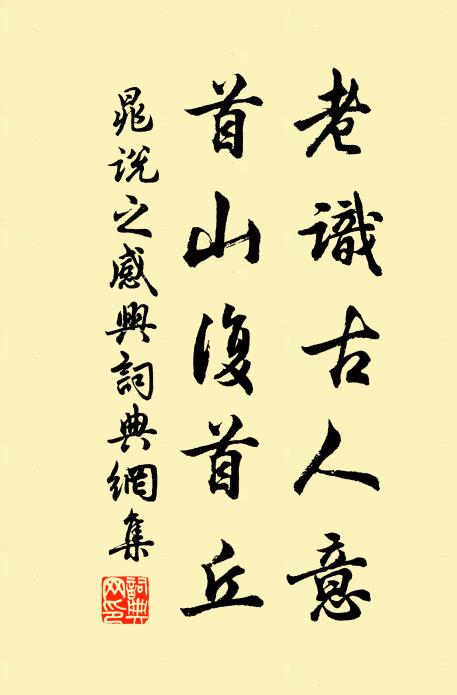 老識古人意
首山復首丘
晁說之感興詞典網集
詞典網印